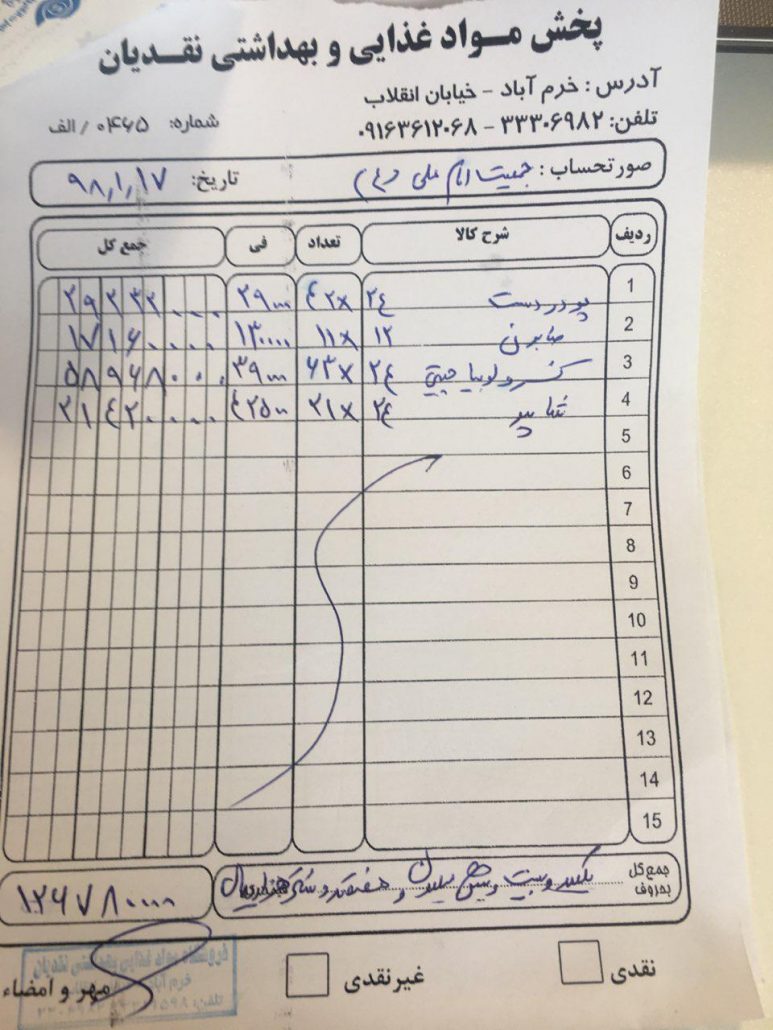 پخش مواد غذایی و بهداشتی نقدیان
آدرس : خرم آباد - خیابان انقلاب
تلفن: ۳۳۳۰۶۹۸۲ - ۰۹۱۶۳۶۱۲۰۶۸
شماره: ۰۴۶۵ / الف
صورتحساب : جمعیت امام علی (ع) تاریخ: ۹۸,۱,۱۷
ردیف شرح کالا تعداد فی جمع کل
1 پودر دست ۲٤ ٤۲x ۲۹۰۰۰ ۲۹۲۳۲۰۰۰
2 صابون ۱۲ ۱۱x ۱۳۰۰۰۰ ۱۷۱۶۰۰۰۰
3 کنسرو لوبیا چیتی ۲٤ ۶۳x ۳۹۰۰۰ ۵۸۹۶۸۰۰۰
4 شامپو ۲٤ ۲۱x ٤۲۵۰۰ ۲۱٤۲۰۰۰۰
5
6
7
8
9
10
11
12
13
14
15
جمع کل بحروف یکصد و بیست و شش میلیون و هفتصد و هزار ریال ۱۲۶۷۸۰۰۰۰
نقدی غیرنقدی مهر و امضاء